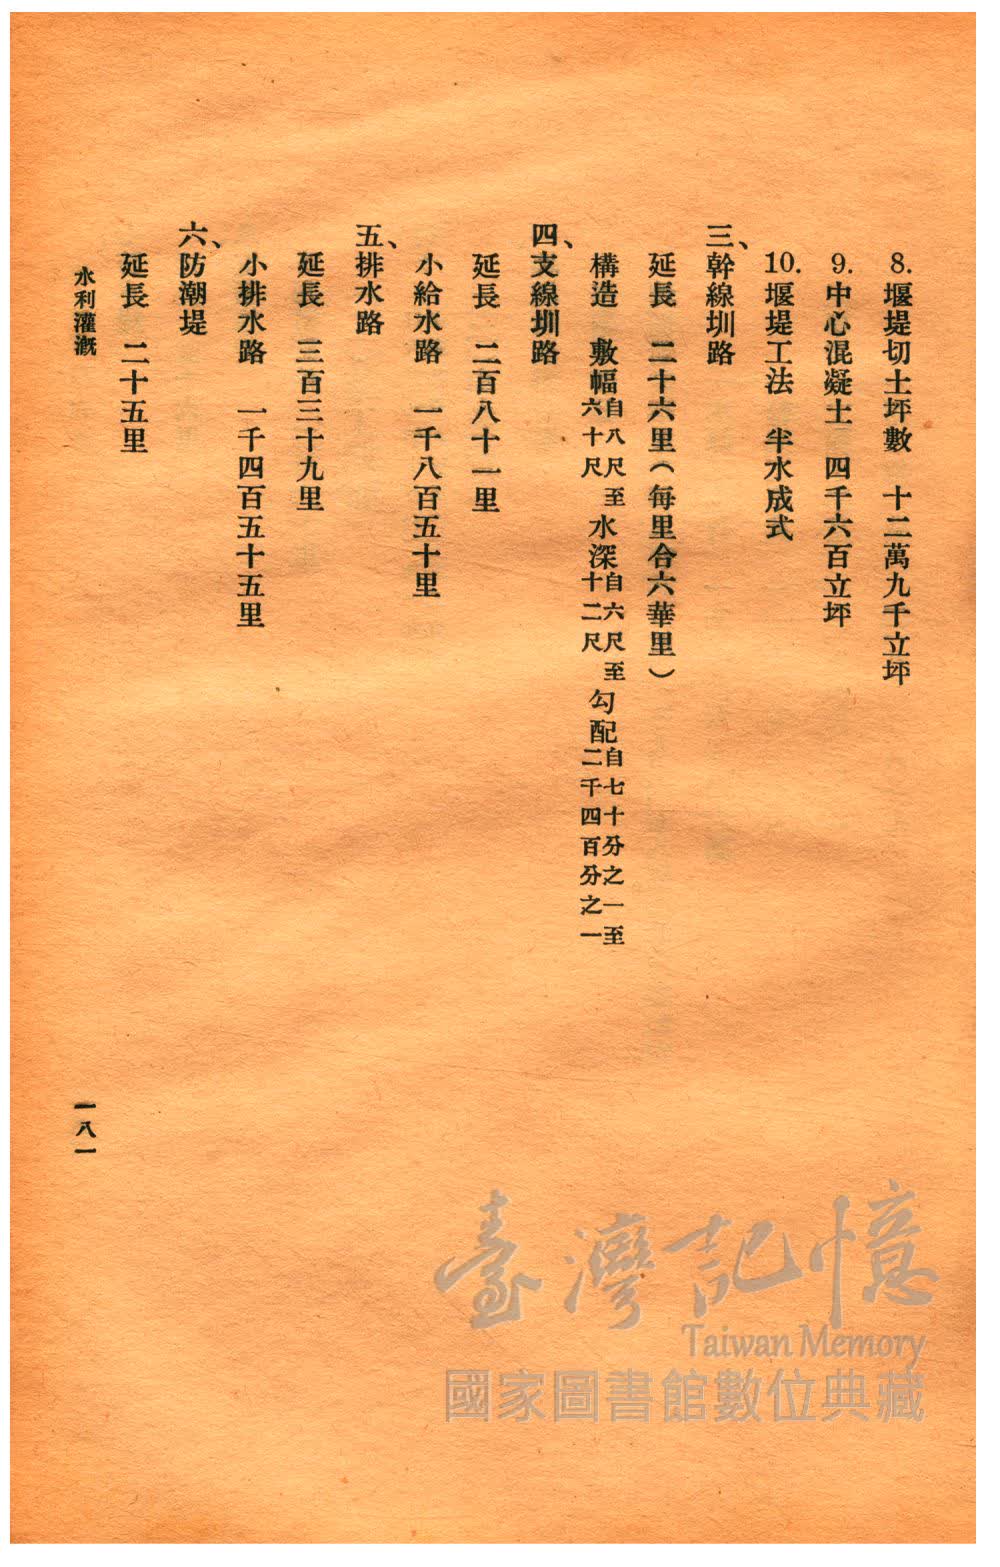 8. 堰堤切土坪數　十二萬九千立坪
9. 中心混凝土　四千六百立坪
10. 堰堤工法　半水成式
三、幹線圳路
延長　二十六里（每里合六華里）
構造　敷幅自八尺至六十尺　水深自六尺至十二尺　勾配自七十分之一至二千四百分之一
四、支線圳路
延長　二百八十一里
小給水路　一千八百五十里
五、排水路
延長　三百三十九里
小排水路　一千四百五十五里
六、防潮堤
延長　二十五里
水利灌漑
一八一
臺灣記憶
Taiwan Memory
國家圖書館數位典藏